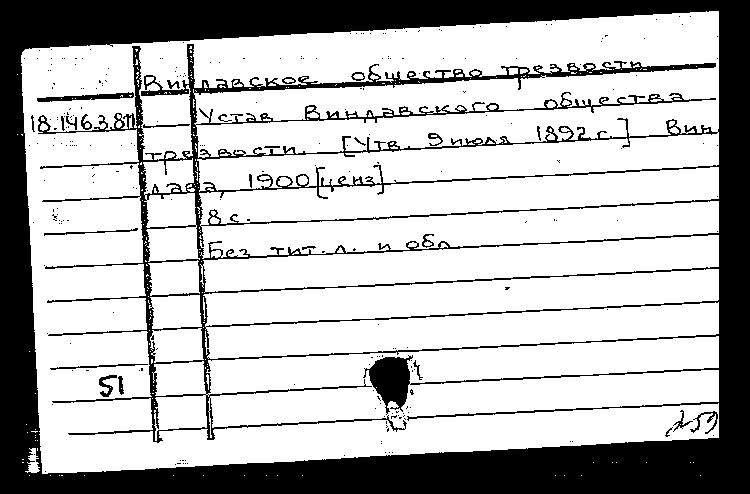 Виндавское общество трезвости.
18.146.3.8П Устав Виндавского общества
трезвости. [Утв. 9 июля 1892 г.] Вин
дава, 1900 [ценз].
8 с.
Без тит. л. и обл
51